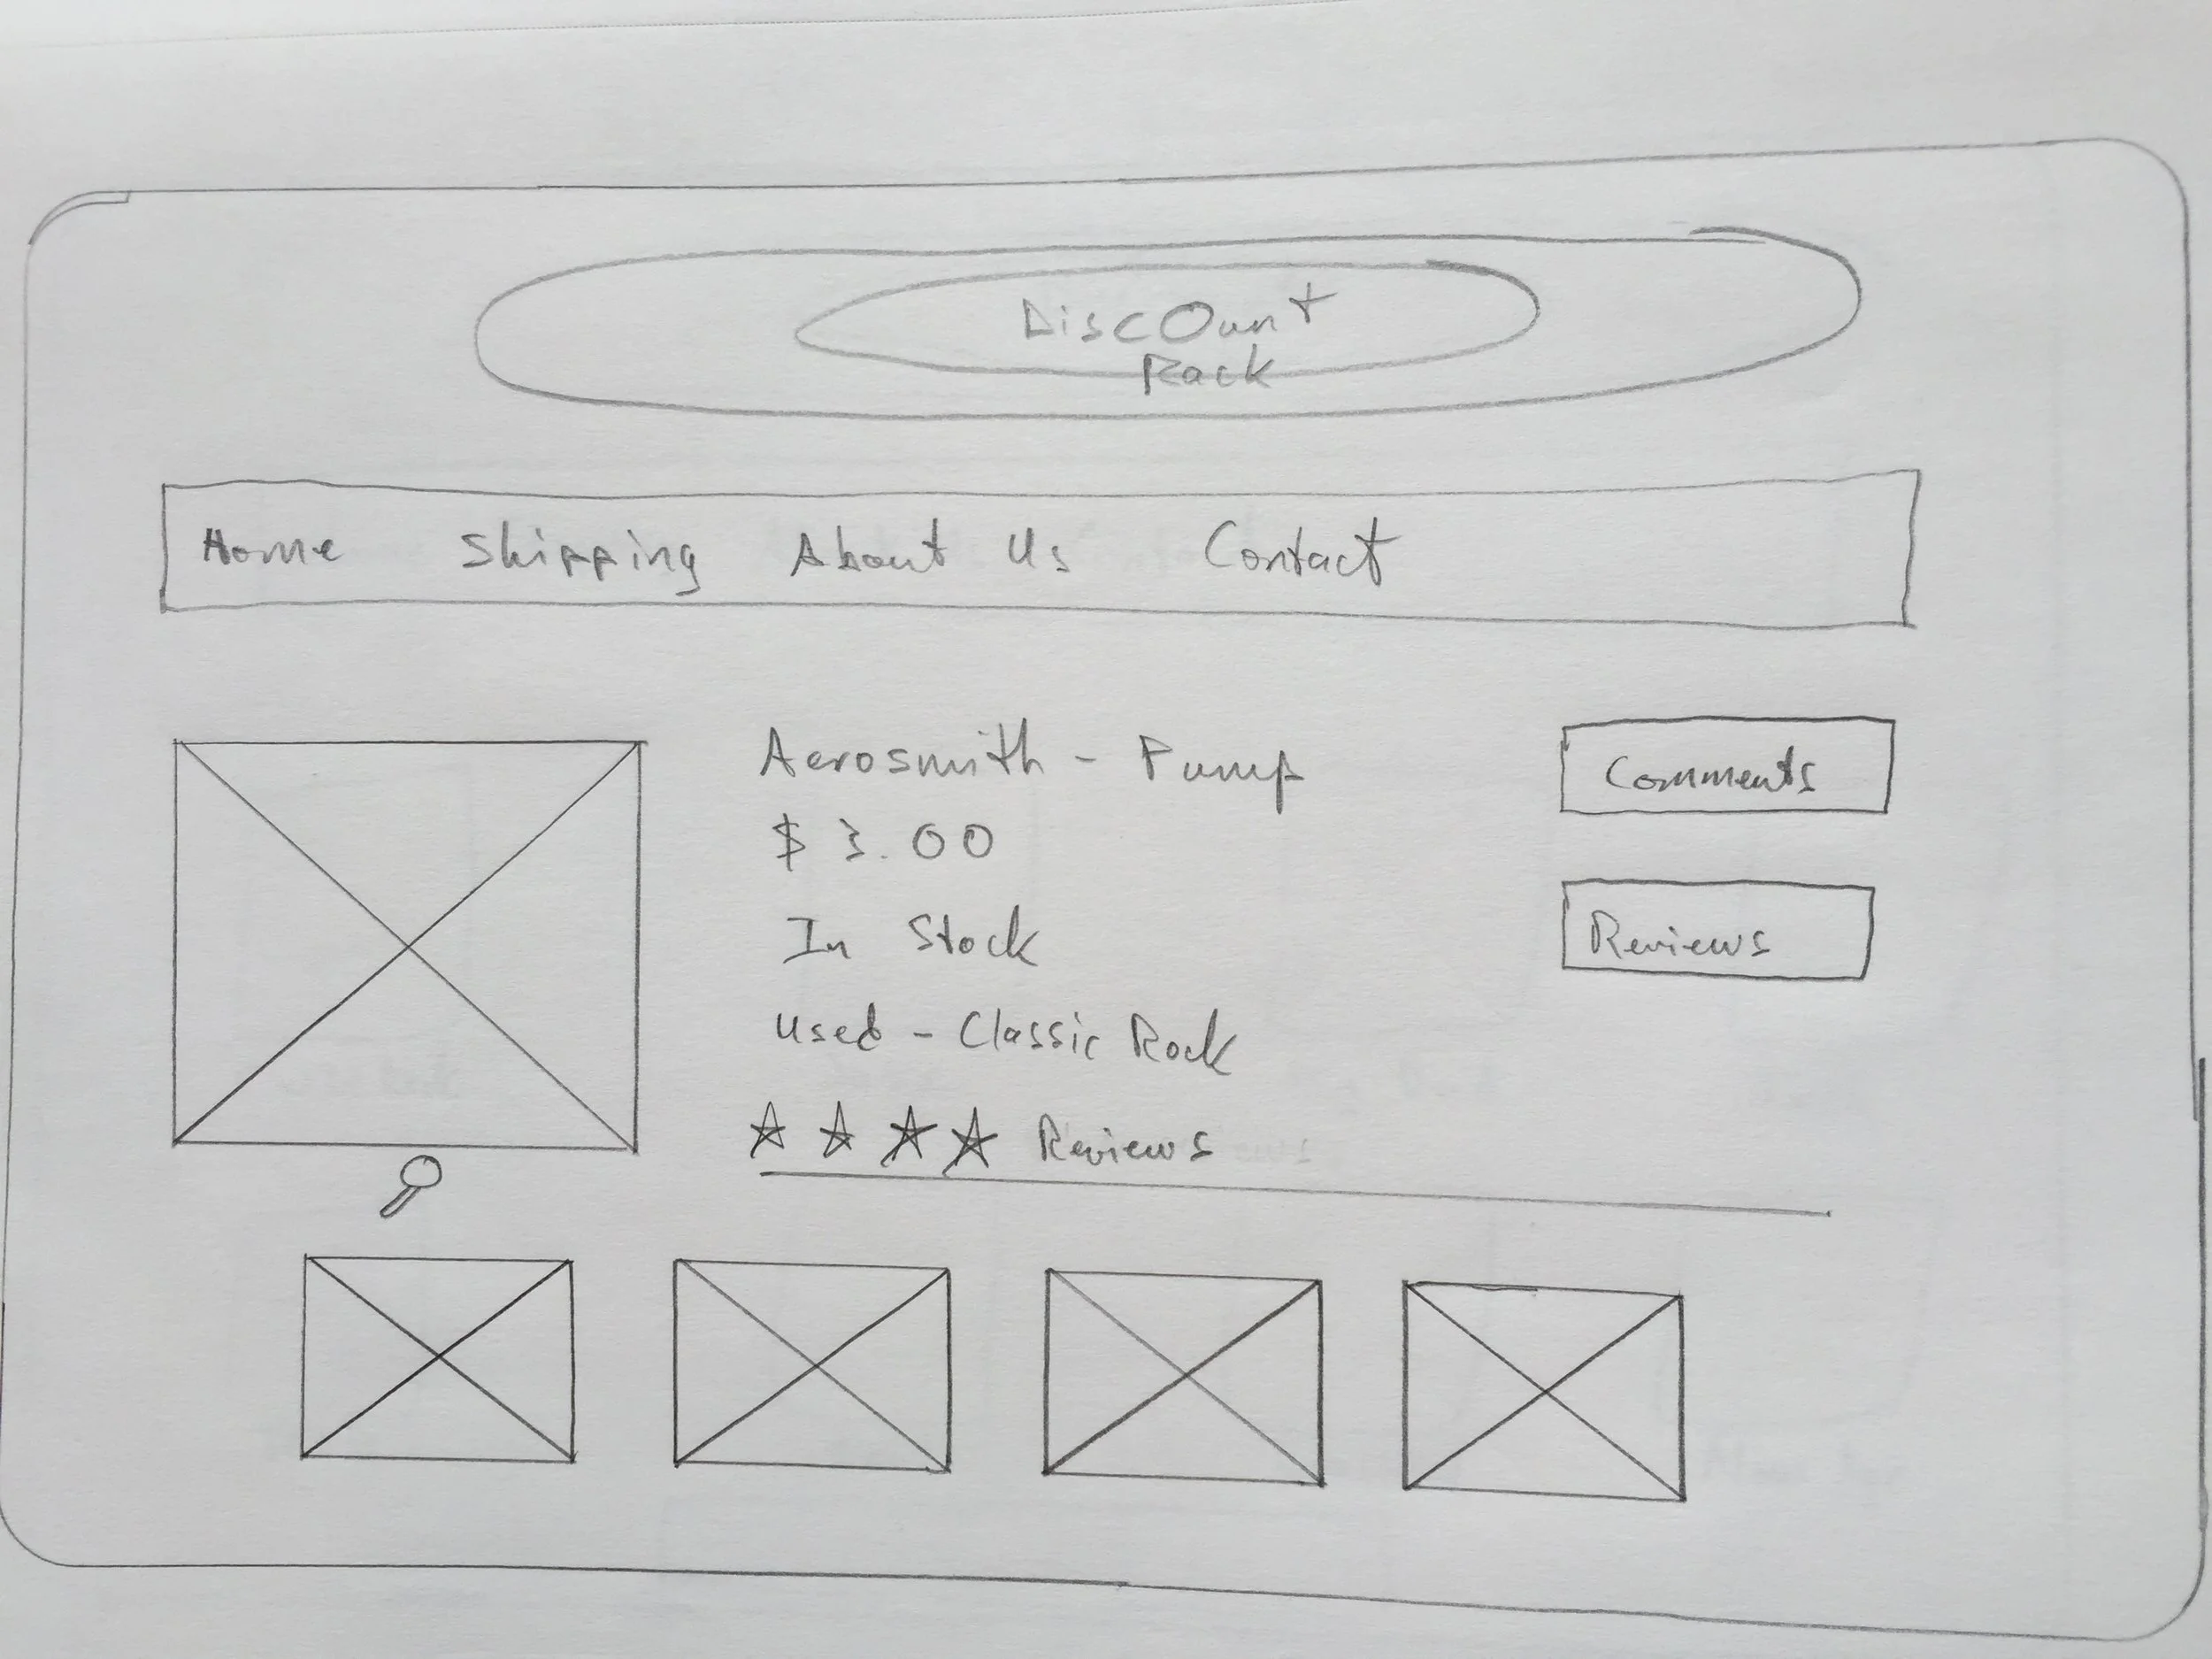 DiscOunt
Rack
Home Shipping About Us Contact
Aerosmith - Pump
$ 3.00
In Stock
Used - Classic Rock
Reviews
Comments
Reviews